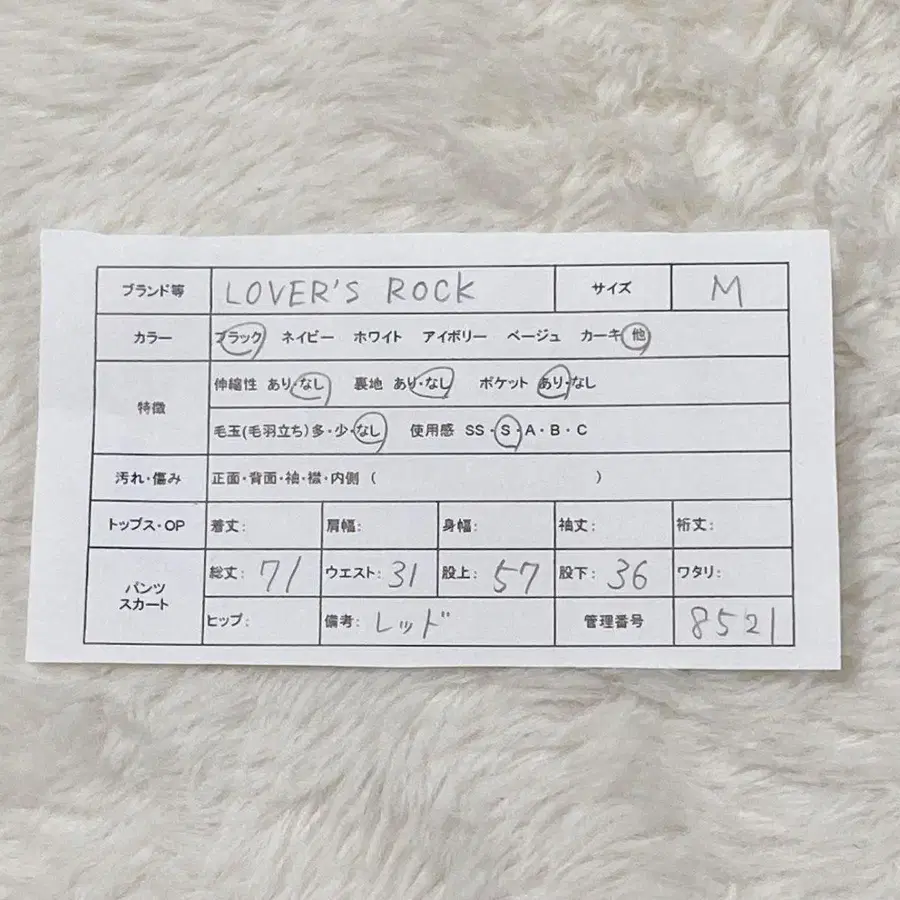 ブランド等 LOVER'S ROCK サイズ M
カラー ブラック ネイビー ホワイト アイボリー ベージュ カーキ 他
特徴 伸縮性 あり・なし 裏地 あり・なし ポケット あり・なし
毛玉(毛羽立ち)多・少・なし 使用感 SS・S・A・B・C
汚れ・傷み 正面・背面・袖・襟・内側 ( )
トップス・OP 着丈: 肩幅: 身幅: 袖丈: 裄丈:
パンツ スカート 総丈: 71 ウエスト: 31 股上: 57 股下: 36 ワタリ:
ヒップ: 備考: レッド 管理番号 8521